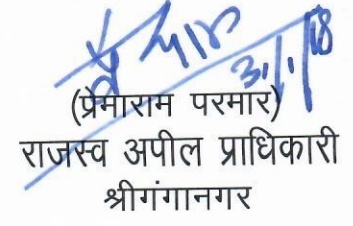 31/1/18
(प्रेमाराम परमार)
राजस्व अपील प्राधिकारी
श्रीगंगानगर